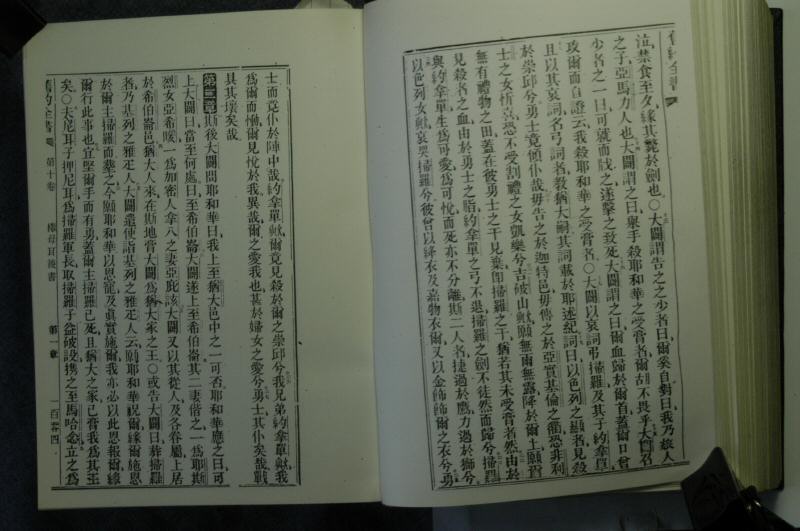 舊約全書
泣禁食至夕緣其斃於劍也○大闢謂告之之少者曰爾奚自對曰我乃旅人
之子亞馬力人也大闢謂之曰舉手殺耶和華之受膏者爾胡不畏乎大闢召
少者之一曰可就而戕之遂擊之致死大闢謂之曰爾血歸於爾首蓋爾口曾
攻爾而自證云我殺耶和華之受膏者○大闢以哀詞弔掃羅及其子約拿單
且以其哀詞名弓詞者教猶大嗣其詞載於耶述紀詞曰以色列之顯者見殺
於崇邱兮勇士竟傾仆哉毋告之於迦特邑毋傳之於亞實基倫之衢恐非利
士之女忻喜恐不受割禮之女凱樂兮吉破山歟願無雨無露降於爾土願爾
無有禮物之田蓋在彼勇士之干見棄卽掃羅之干猶若其未受膏者然由於
見殺者之血由於勇士之脂約拿單之弓不退掃羅之劍不徒然而歸兮掃羅
與約拿單生爲可愛爲可悅而死亦不分離斯二人者捷過於鷹力過於獅兮
以色列女歟哀哭掃羅兮彼曾以絳衣及嘉物衣爾又以金飾飾爾之衣兮勇
士而竟仆於陣中哉約拿單歟爾竟見殺於爾之崇邱兮我兄弟約拿單歟我
爲爾而慟爾見悅於我異哉爾之愛我也甚於婦女之愛兮勇士其仆矣哉戰
具其壞矣哉
第二章斯後大闢問耶和華曰我上至猶大邑中之一可否耶和華應之曰可
上大闢曰當至何處曰至希伯崙大闢遂上至希伯崙其二妻偕之一爲耶斯
烈女亞希暖一爲加密人拿八之妻亞庇該大闢又以其從人及各眷屬上居
於希伯崙邑猶大人來在斯地膏大闢爲猶大家之王○或告大闢曰葬掃羅
者乃基列之雅疋人大闢遣使詣基列之雅疋人云願耶和華祝爾緣爾施恩
於爾主掃羅而葬之今願耶和華以恩寵及眞實施爾我亦必以此恩報爾緣
爾行此事也宜堅爾手而有勇蓋爾主掃羅已死且猶大之家已膏我爲其王
矣○夫尼耳子押尼耳爲掃羅軍長取掃羅子益破設携之至馬哈念立之爲
舊約全書 第十卷 撒母耳後書 第一章 一百零四